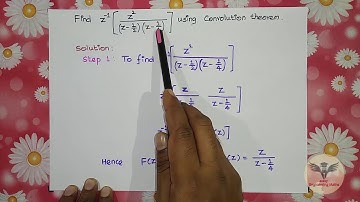 Find z⁻¹ [ z² / (z-½)(z-¼) ] using Convolution theorem.
Solution:
Step 1: To find [ z² / (z-½)(z-¼) ]
z / z-½ z / z-¼
Hence F(z) (z) = z / z-¼